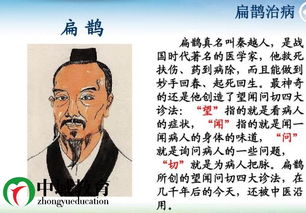 扁鹊治病
扁鹊
扁鹊真名叫秦越人，是战
国时代著名的医学家，他救死
扶伤、药到病除，而且能做到
妙手回春、起死回生。最神奇
的还是他创造了望闻问切四大
诊法：“望”指的就是看病人
的症状，“闻”指的就是闻一
闻病人的身体的味道，“问”
就是询问病人的一些问题，
“切”就是为病人把脉。扁鹊
所创的望闻问切四大诊法，在
几千年后的今天，还被中医沿
用。
zhongyueducation